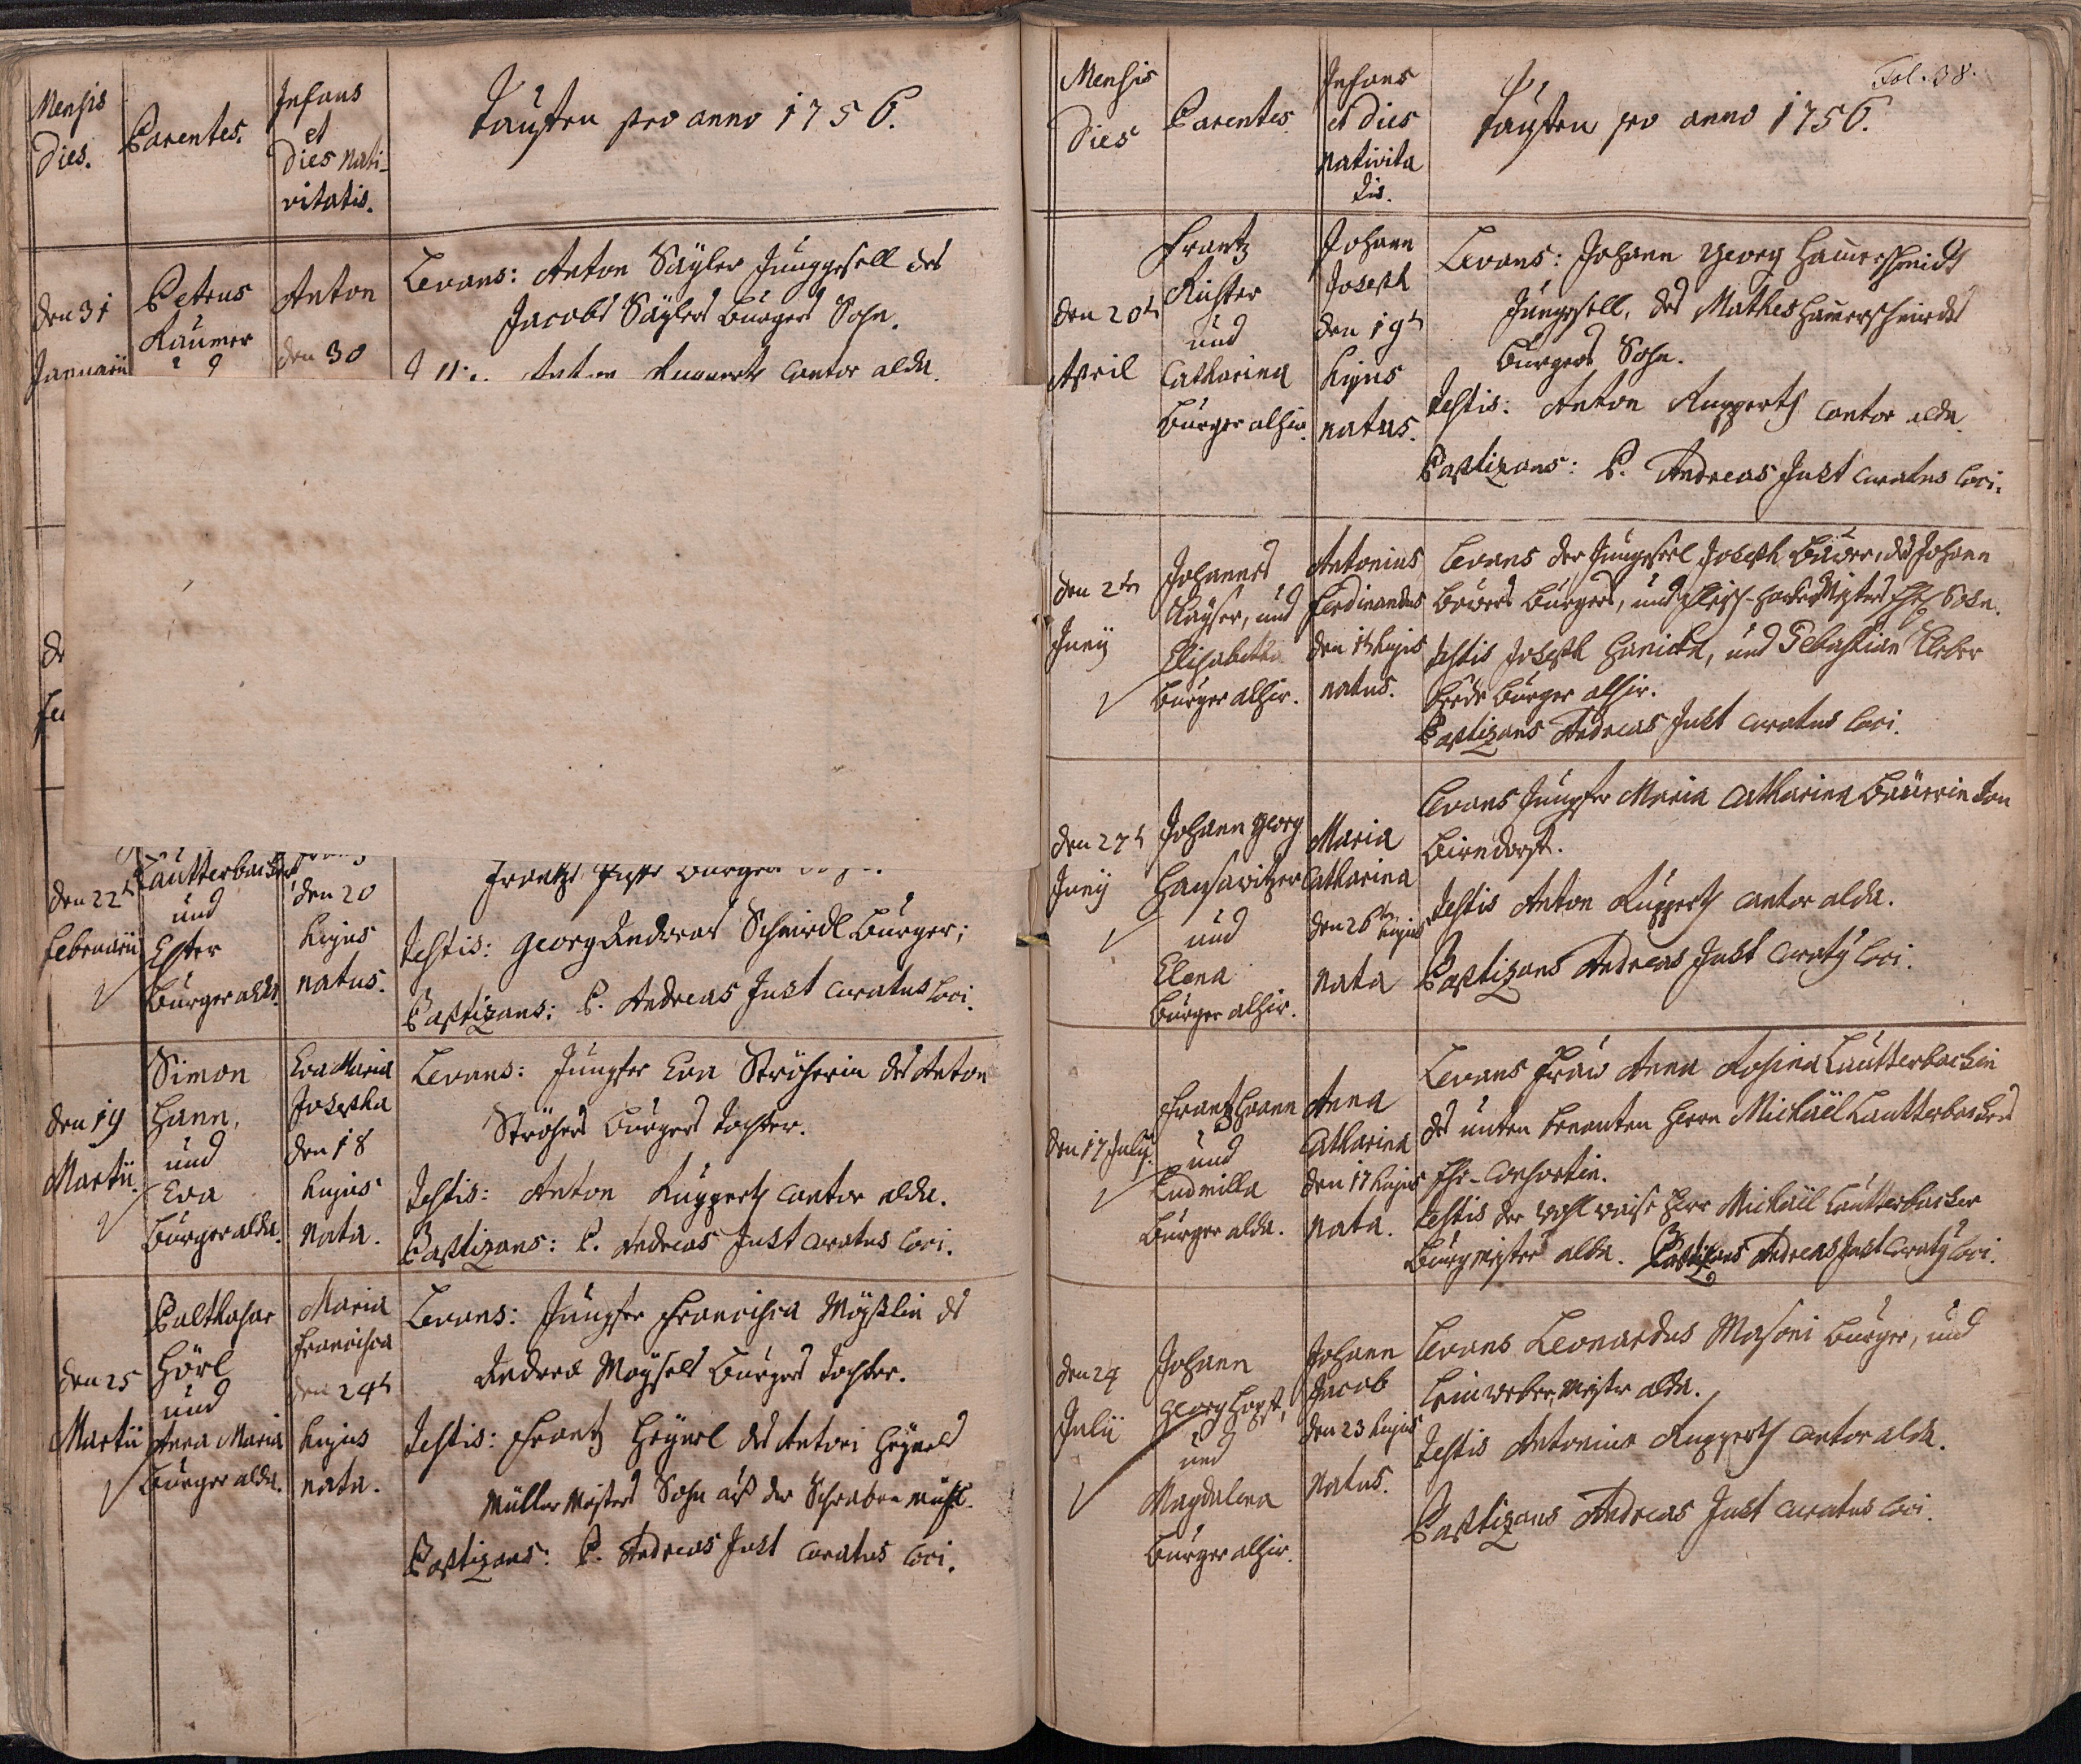 Mensis
Dies.
Parentes.
Infans
et
Dies nati-
vitatis.
Tauffen pro anno 1756.
den 31
Januarii
Petrus
Raumer
Anton
den 30
Levans: Anton Säyler Junggesell des
Jacobs Säylers Burgers Sohn.
Anton Ruppert Cantor alda.
den 22t
Februarii
Lautterbacher
und
Ester
Burger alda.
den 20
hujus
natus.
Testis: Georg Andreas Schmidl Burger;
Baptizans: P. Andreas Just Curatus loci.
den 19
Martii.
Simon
Hann,
und
Eva
Burger alda.
Eva Maria
Josepha
den 18
hujus
nata.
Levans: Jungfer Eva Ströherin des Anton
Ströhers Burgers Tochter.
Testis: Anton Ruppert Cantor alda.
Baptizans: P. Andreas Just Curatus loci.
den 25
Martii
Balthasar
Hörl
und
Anna Maria
Burger alda.
Maria
Francisca
den 24t
hujus
nata.
Levans: Jungfer Francisca Möysslin des
Andrea Möysels Burgers Tochter.
Testis: Frantz Heynel des Antoni Heynels
Müller Meisters Sohn aus der Schraben Mühl.
Baptizans: P. Andreas Just Curatus loci.
Fol. 38.
Mensis
Dies
Parentes
Infans
et Dies
nativita
tis.
Tauffen pro anno 1756.
den 20t
April
Frantz
Richter
und
Catharina
Burger alhir.
Johann
Joseph
den 19t
hujus
natus.
Levans: Johann Georg Hamerschmidt
Jungesell, des Mathes Hamerschmidts
Burgers Sohn.
Testis: Anton Ruppert Cantor alda.
Baptizans: P. Andreas Just Curatus loci.
den 2ten
Junij
Johannes
Kayser, und
Elisabetha
Burger alhir.
Antonius
Ferdinandus
den 1t hujus
natus.
Levans der Jungesel Joseph Bawer, des Johann
Bawers Burgers, und Fleisch-hacker Meisters Ehe Sohn.
Testis Joseph Hanickh, und Sebastian Kleber
beede Burger alhir.
Baptizans Andreas Just Curatus loci.
den 27t
Junij
Johann Georg
Hansawitzer
und
Elena
Burger alhir.
Maria
Catharina
den 26ten hujus
nata
Levans Jungfer Maria Catharina Bauerin von
Birndorf.
Testis Anton Ruppert Cantor alda.
Baptizans Andreas Just Curatq loci.
den 17 July.
Frantz Hann
und
Ludmilla
Burger alda.
Anna
Catharina
den 17 hujus
nata.
Levans Fraw Anna Rosina Lautterbachin
des unten benanten Herrn Michäel Lautterbachers
Ehe-Consortin.
Testis der Wohl weise Herr Michäel Lautterbacher
Burgmeister alda. Baptizans Andreas Just Curatq loci.
den 24
Julii
Johann
Georg Hopf,
und
Magdalena
Burger alhir.
Johann
Jacob
den 23 hujus
natus.
Levans Leonardus Masoni Burger, und
Leinweber Meister alda.
Testis Antonius Ruppert Cantor alda.
Baptizans Andreas Just Curatus loci.